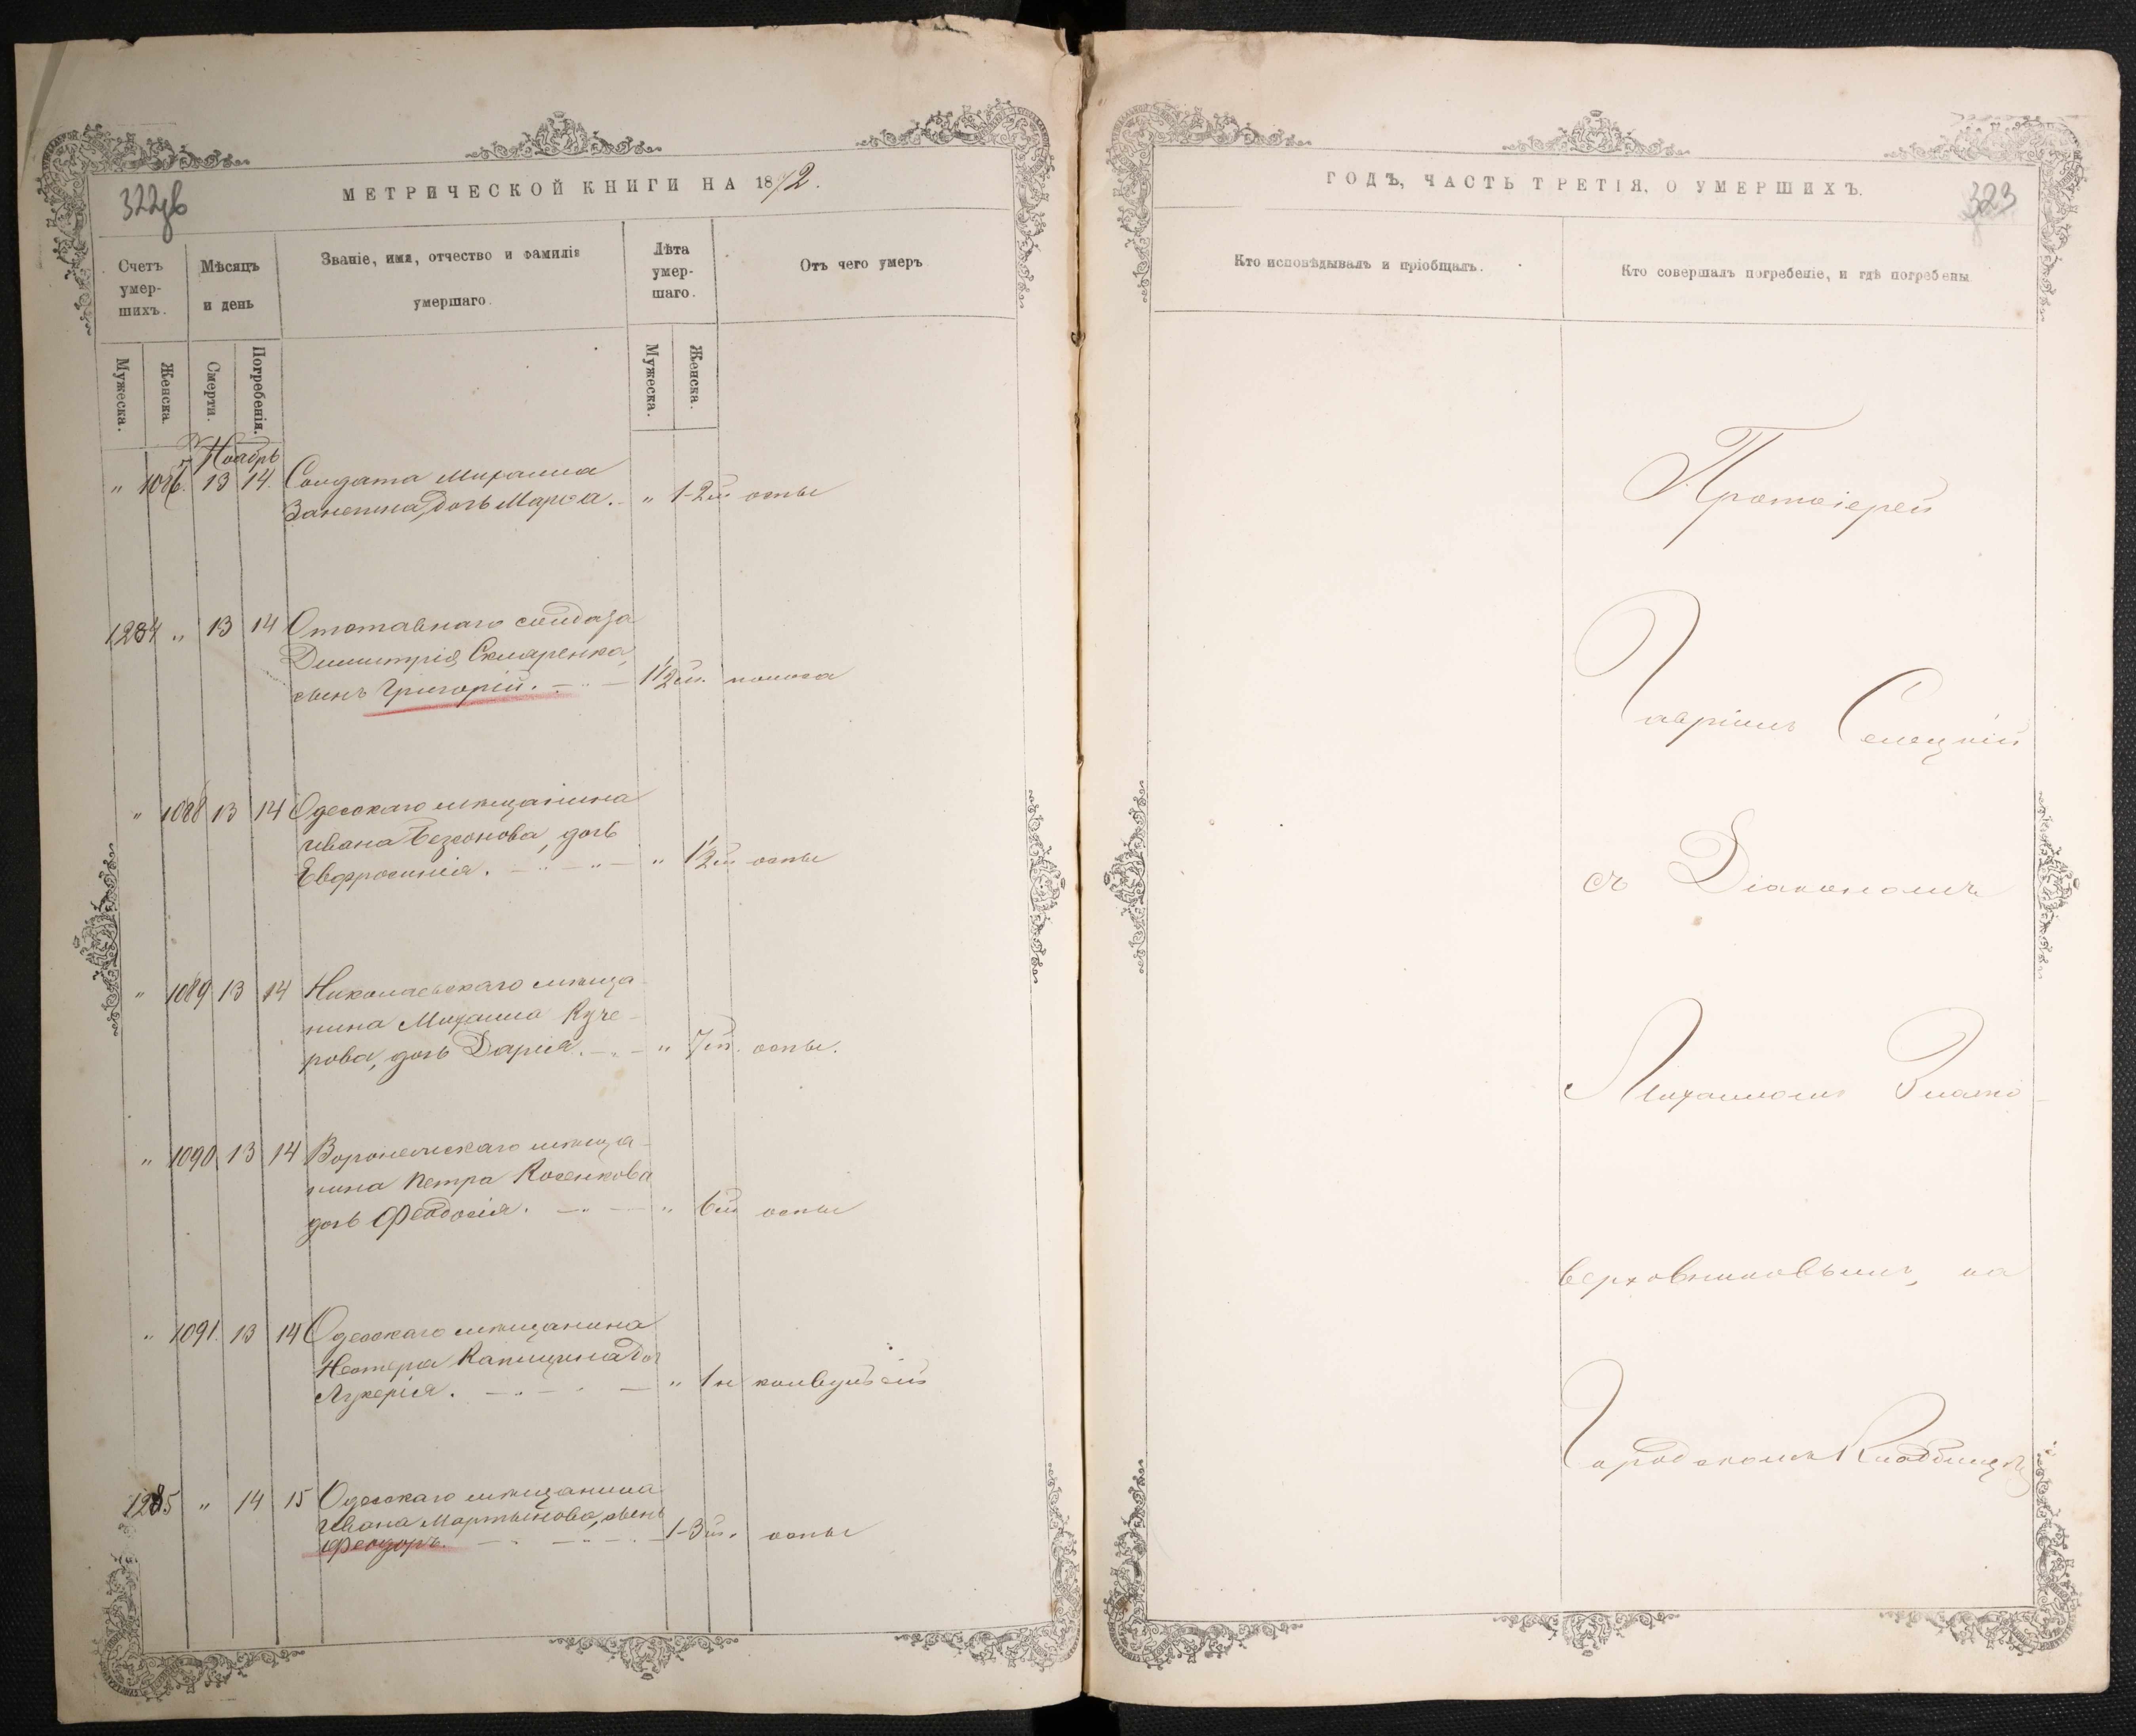 322 зв
МЕТРИЧЕСКОЙ КНИГИ НА 1872.
Счетъ умер-шихъ.
Мѣсяцъ и день
Званіе, имя, отчество и фамилія умершаго.
Лѣта умер-шаго.
Отъ чего умеръ
Мужеска.
Женска.
Смерти.
Погребенія.
Мужеска.
Женска.
Ноябрь
" 1086. 13 14. Солдата Михаила
дочь Марѳа. " 1-2 м оспы
1284 " 13 14 Отставнаго солдата
Димитрія Скляренка,
сынъ Григорій. 1½ м.
" 1088 13 14 Одесскаго мѣщанина
Ивана Безсонова, дочь
Евфросинія. " 1½ оспы
" 1089 13 14 Николаевскаго мѣща-
нина Михаила Куче-
рова, дочь Дарія. " 7 оспы.
" 1090 13 14 Воронежскаго мѣща-
нина Петра Косенкова
дочь Феодосія. " 6 оспы
" 1091. 13 14 Одесскаго мѣщанина
Нестера
Лукерія. " 1 н
1285 " 14 15 Одесскаго мѣщанина
Ивана Мартынова, сынъ
Феодоръ. 1-3 оспы
ГОДЪ, ЧАСТЬ ТРЕТІЯ, О УМЕРШИХЪ.
323
Кто исповѣдывалъ и пріобщалъ.
Кто совершалъ погребеніе, и гдѣ погребены
Протоіерей
Гавріилъ Селецкій
съ Діакономъ
Михаиломъ Злато-
верховниковымъ, на
Городскомъ Кладбищѣ